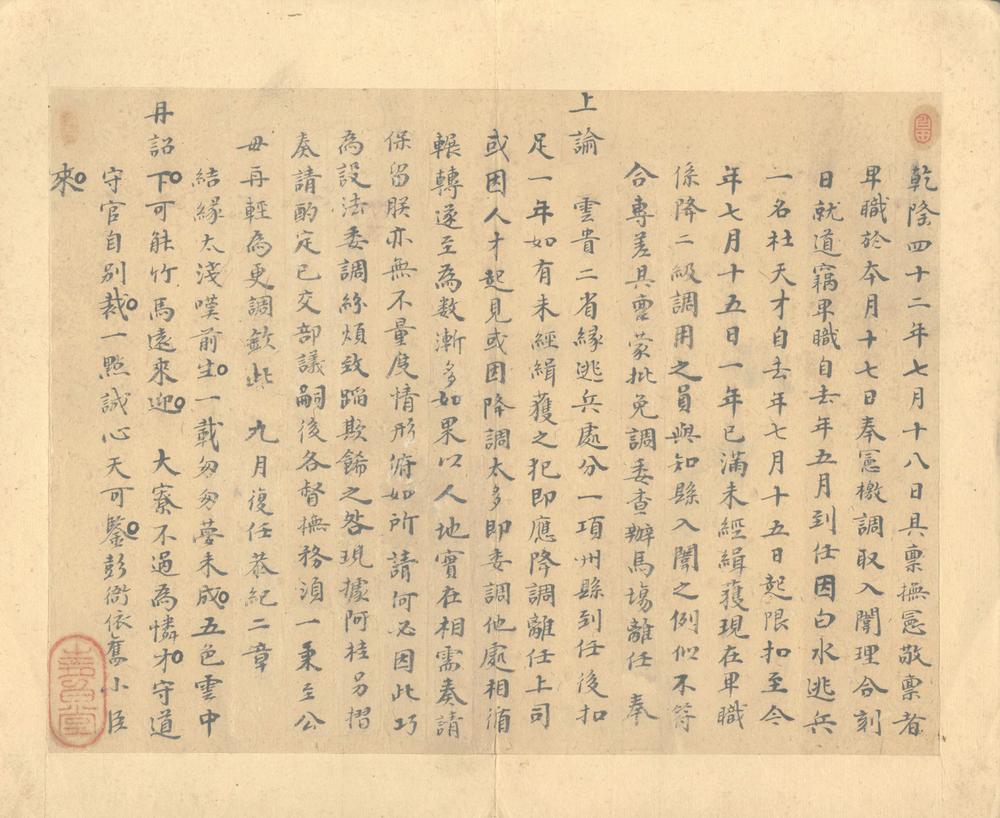 乾隆四十二年七月十八日具禀撫憲敬禀者
卑職於本月十七日奉憲檄調取入闈理合刻
日就道竊卑職自去年五月到任因白水逃兵
一名杜天才自去年七月十五日起限扣至今
年七月十五日一年已滿未經緝獲現在卑職
係降二級調用之員與知縣入闈之例似不符
合專差具禀蒙批免調委查辦馬塲離任 奉
上諭 雲貴二省緣逃兵處分一項州縣到任後扣
足一年如有未經緝獲之犯即應降調離任上司
或因人才起見或因降調太多即委調他處相循
輾轉遂至為數漸多如果以人地實在相需奏請
保留朕亦無不量度情形俯如所請何必因此巧
為設法委調紛煩致蹈欺飾之咎現據阿桂另摺
奏請酌定已交部議嗣後各督撫務須一秉至公
毋再輕為更調欽此 九月復任恭紀二章
結緣太淺嘆前生一載匆匆夢未成五色雲中
丹詔下可能竹馬遠來迎 大寮不過為憐才守道
守官自別裁一點誠心天可鑒彭衙依舊小臣
來